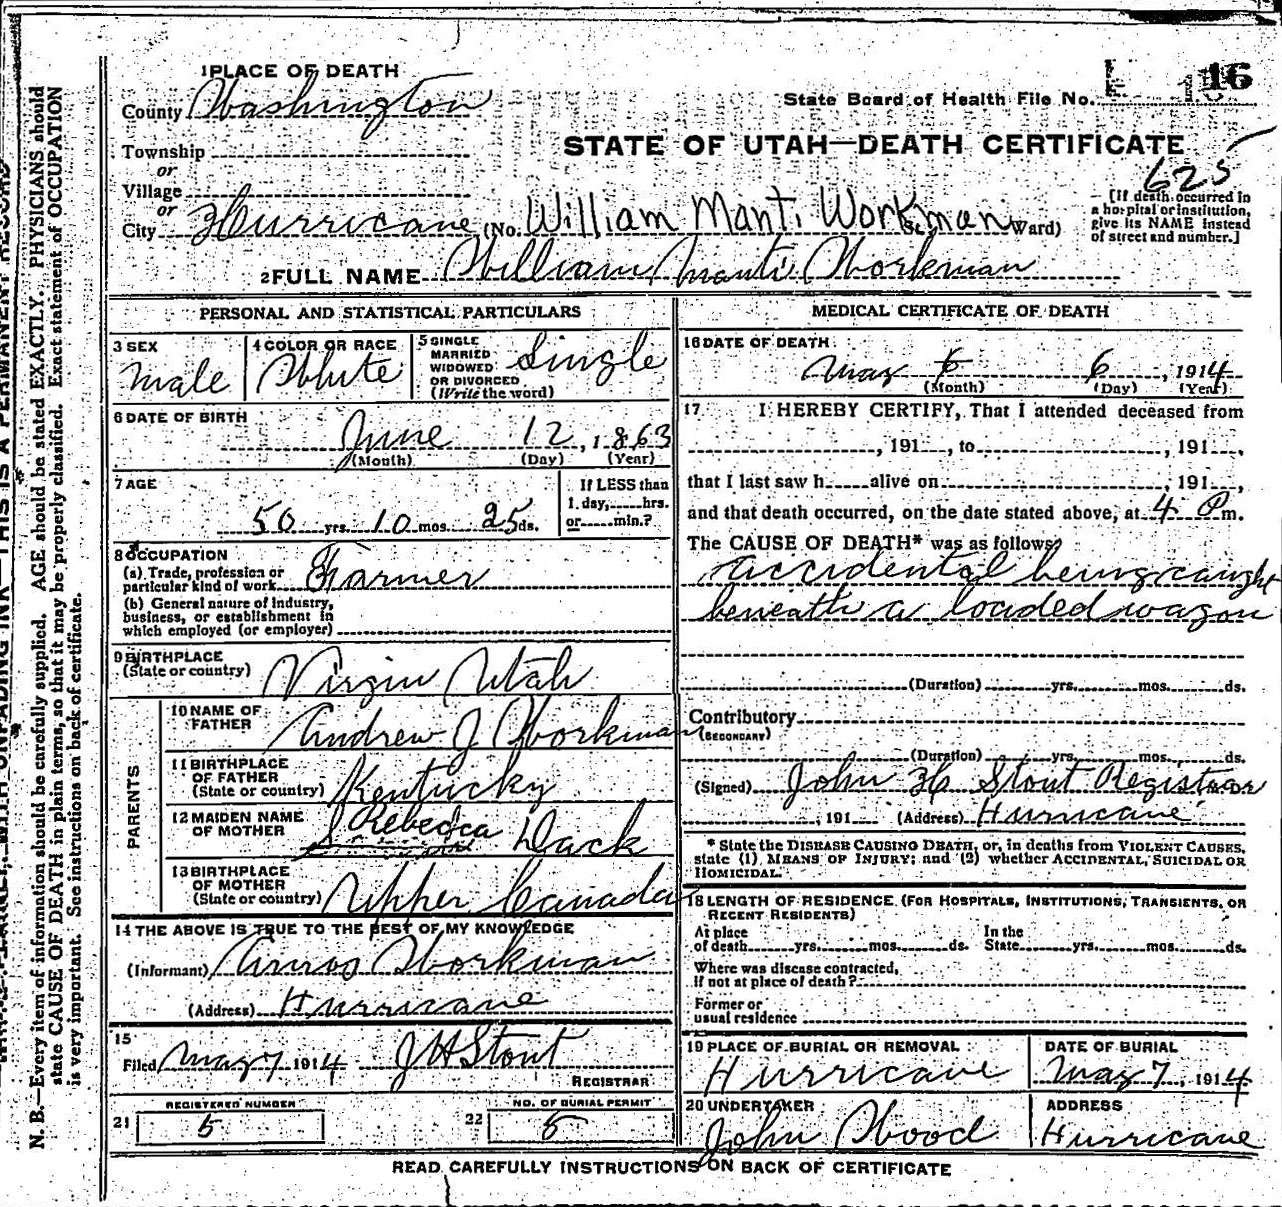 1 PLACE OF DEATH
County Washington
State Board of Health File No. 16
Township
or
Village
or
City Hurricane (No. William Manti Workman St. Ward)
STATE OF UTAH—DEATH CERTIFICATE
625
[If death occurred in
a hospital or institution,
give its NAME instead
of street and number.]
2 FULL NAME William Manti Workman
PERSONAL AND STATISTICAL PARTICULARS
3 SEX
Male
4 COLOR OR RACE
White
5 SINGLE
MARRIED
WIDOWED
OR DIVORCED
(Write the word)
Single
6 DATE OF BIRTH
June 12, 1863
(Month) (Day) (Year)
7 AGE
50 yrs. 10 mos. 25 ds.
If LESS than
1 day, hrs.
or min.?
8 OCCUPATION
(a) Trade, profession or
particular kind of work Farmer
(b) General nature of industry,
business, or establishment in
which employed (or employer)
9 BIRTHPLACE
(State or country) Virgin Utah
PARENTS
10 NAME OF
FATHER Andrew J Workman
11 BIRTHPLACE
OF FATHER
(State or country) Kentucky
12 MAIDEN NAME
OF MOTHER Rebecca Dack
13 BIRTHPLACE
OF MOTHER
(State or country) Upper Canada
14 THE ABOVE IS TRUE TO THE BEST OF MY KNOWLEDGE
(Informant) Amos Workman
(Address) Hurricane
15
Filed May 7 1914 J H Stout
REGISTRAR
REGISTERED NUMBER
21 5
NO. OF BURIAL PERMIT
22 5
MEDICAL CERTIFICATE OF DEATH
16 DATE OF DEATH
May 6 6, 1914
(Month) (Day) (Year)
17 I HEREBY CERTIFY, That I attended deceased from
, 191 , to , 191 ,
that I last saw h alive on , 191 ,
and that death occurred, on the date stated above, at 4 P m.
The CAUSE OF DEATH* was as follows:
accidental being caught
beneath a loaded wagon
(Duration) yrs. mos. ds.
Contributory
(SECONDARY)
(Duration) yrs. mos. ds.
(Signed) John H Stout Registrar
, 191 (Address) Hurricane
* State the DISEASE CAUSING DEATH, or, in deaths from VIOLENT CAUSES,
state (1) MEANS OF INJURY; and (2) whether ACCIDENTAL, SUICIDAL OR
HOMICIDAL.
18 LENGTH OF RESIDENCE (FOR HOSPITALS, INSTITUTIONS, TRANSIENTS, OR
RECENT RESIDENTS)
At place
of death yrs. mos. ds.
In the
State yrs. mos. ds.
Where was disease contracted,
If not at place of death?
Former or
usual residence
19 PLACE OF BURIAL OR REMOVAL
Hurricane
DATE OF BURIAL
May 7, 1914
20 UNDERTAKER
John Wood
ADDRESS
Hurricane
READ CAREFULLY INSTRUCTIONS ON BACK OF CERTIFICATE
N. B.—Every item of information should be carefully supplied. AGE should be stated EXACTLY. PHYSICIANS should
state CAUSE OF DEATH in plain terms, so that it may be properly classified. Exact statement of OCCUPATION
is very important. See instructions on back of certificate.
WITH UNFADING INK—THIS IS A PERMANENT RECORD